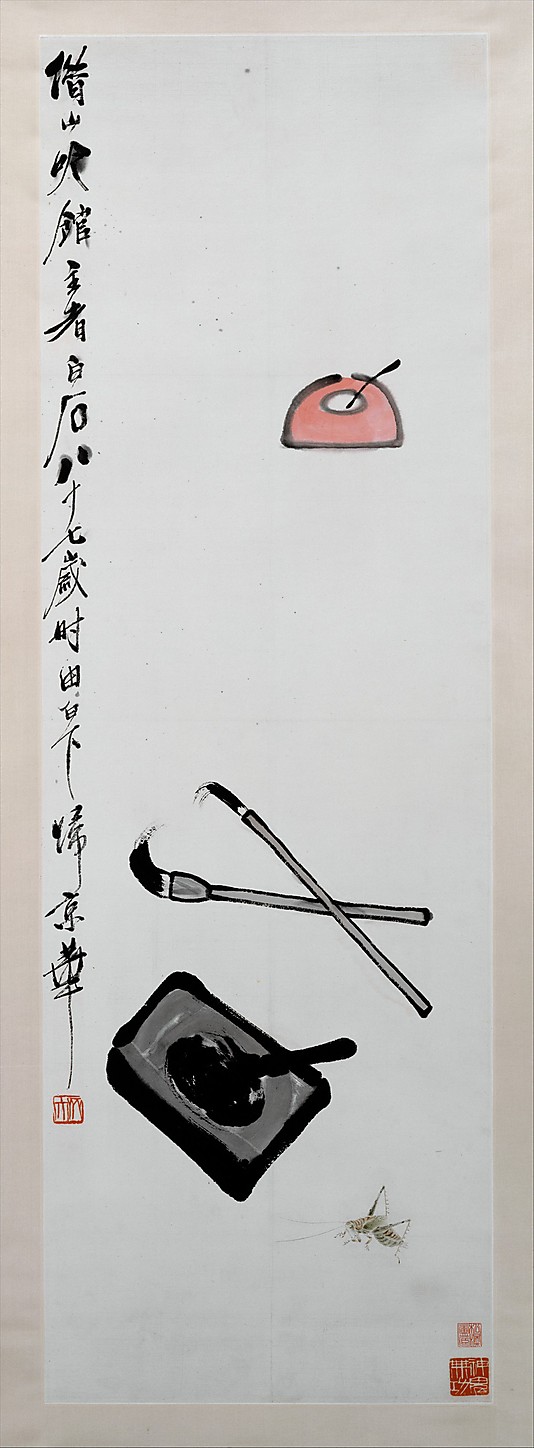 借山吟館主者白石八十七歲時由白下歸京華